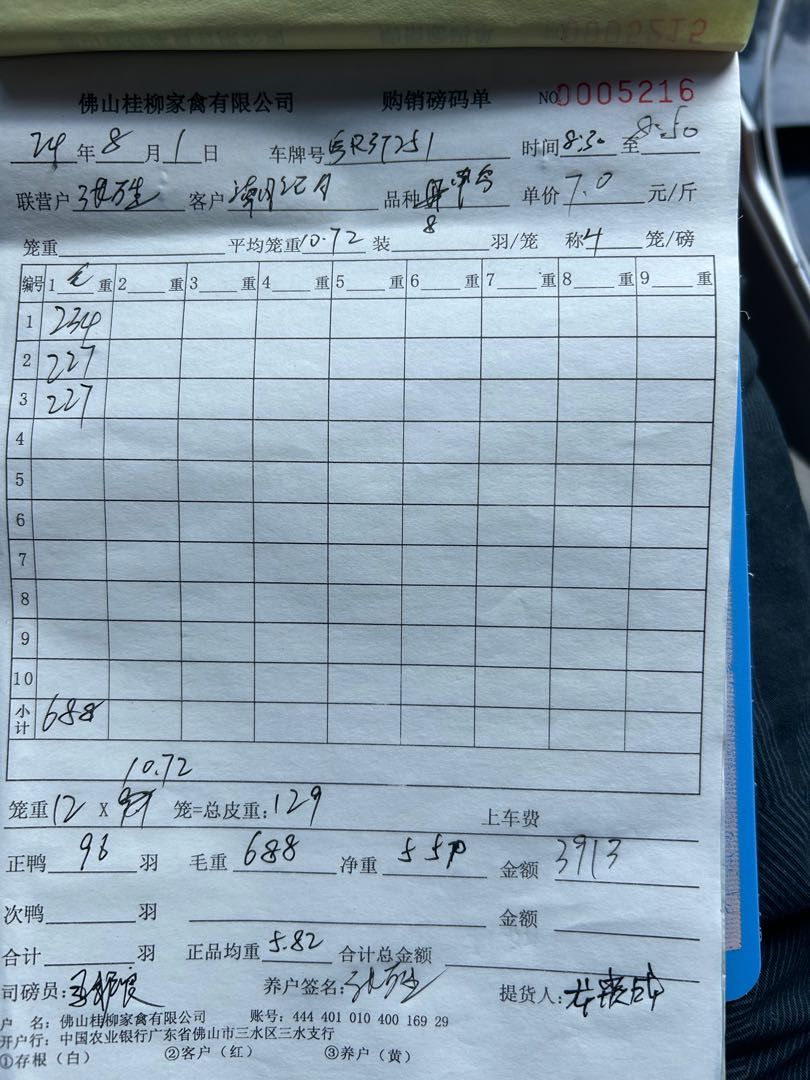 佛山桂柳家禽有限公司 购销磅码单 NO.0005216
24年8月1日 车牌号 R37251 时间8:30至8:50
联营户 张万生 客户 品种 单价7.0元/斤
笼重 平均笼重10.72 装8羽/笼 称4笼/磅
编号 1毛重 2重 3重 4重 5重 6重 7重 8重 9重
1 234
2 227
3 227
4
5
6
7
8
9
10
小计 688
10.72
笼重12 X 笼=总皮重:129 上车费
正鸭96羽 毛重688 净重559 金额3913
次鸭 羽 金额
合计 羽 正品均重5.82 合计总金额
司磅员: 养户签名:张万生 提货人:
户 名:佛山桂柳家禽有限公司 账号:444 401 010 400 169 29
开户行:中国农业银行广东省佛山市三水区三水支行
①存根(白) ②客户(红) ③养户(黄)